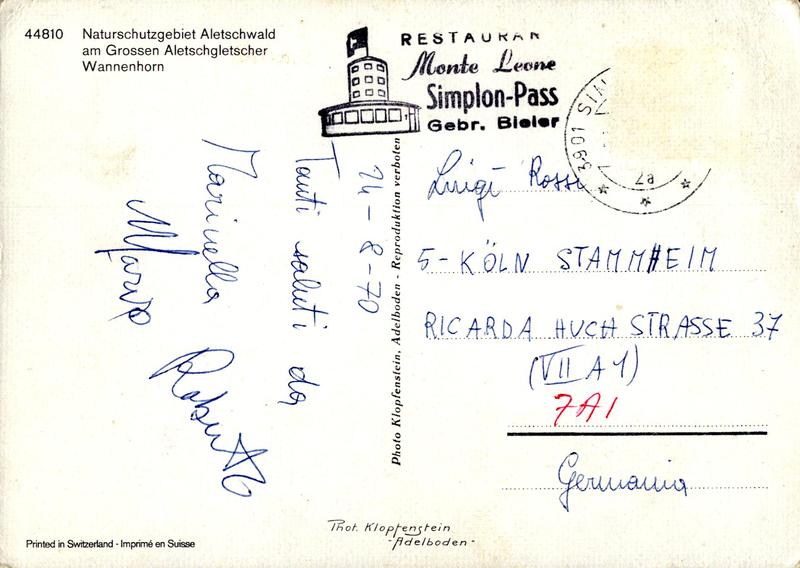 44810 Naturschutzgebiet Aletschwald
am Grossen Aletschgletscher
Wannenhorn
RESTAURAN
Monte Leone
Simplon-Pass
Gebr. Bieler
3901 SIM
24-8-70
Tanti saluti da
Marinella
Mario
Roberto
Photo Klopfenstein, Adelboden. Reproduktion verboten
Luigi Rossi
5-KÖLN STAMMHEIM
RICARDA HUCH STRASSE 37
(VII A 1)
7A1
Germania
Phot. Klopfenstein
-Adelboden-
Printed in Switzerland - Imprimé en Suisse